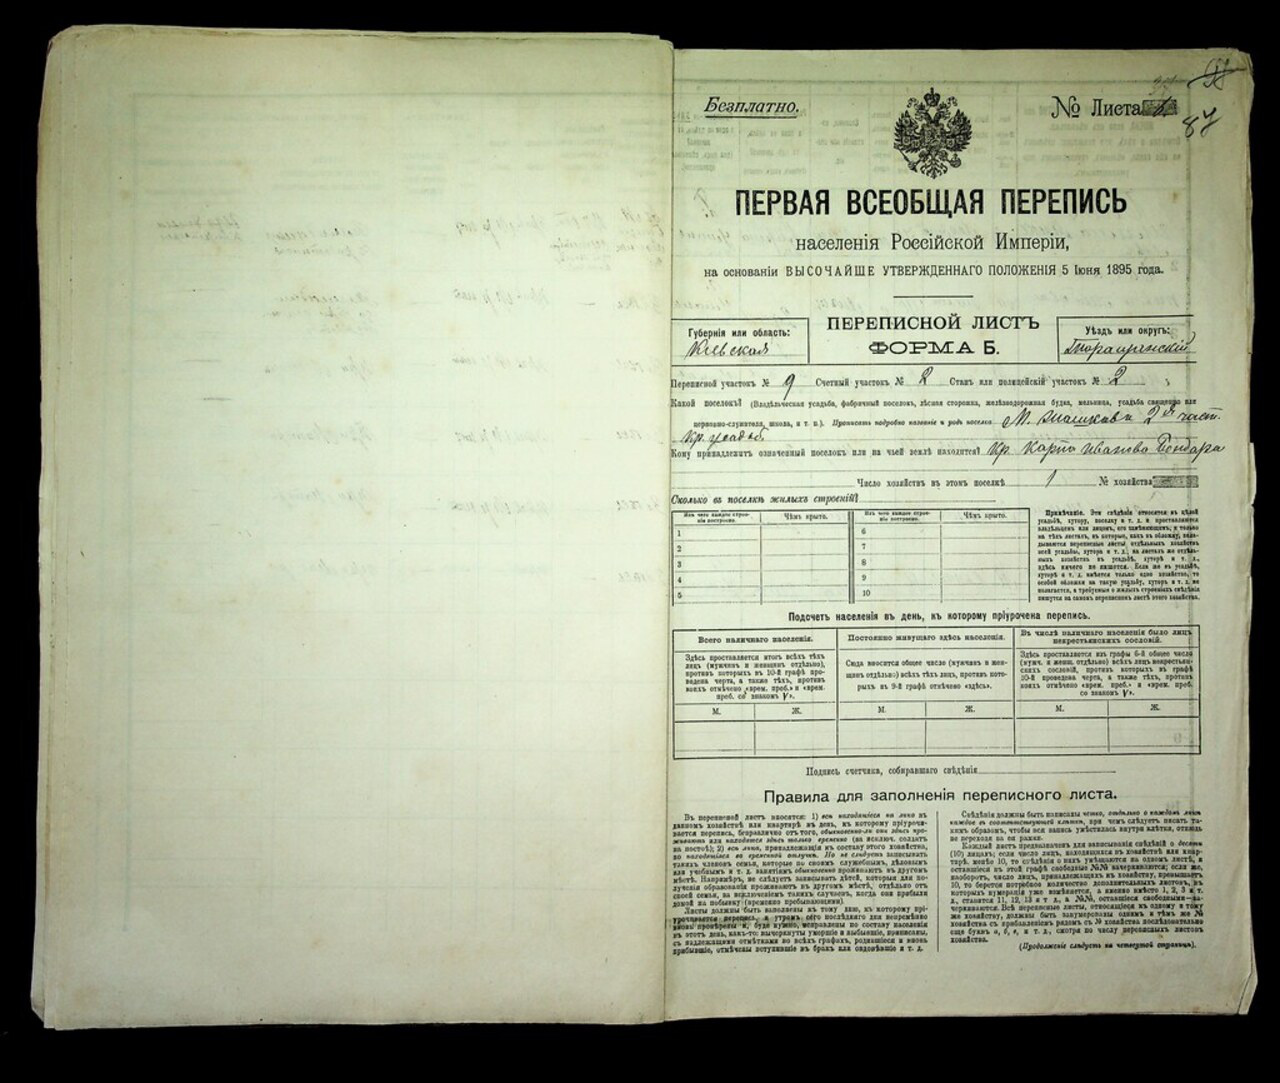 Безплатно.
№ Листа
87
ПЕРВАЯ ВСЕОБЩАЯ ПЕРЕПИСЬ
населенія Россійской Имперіи,
на основаніи ВЫСОЧАЙШЕ УТВЕРЖДЕННАГО ПОЛОЖЕНІЯ 5 Іюня 1895 года.
Губернія или область:
Кіевская
ПЕРЕПИСНОЙ ЛИСТЪ
ФОРМА Б.
Уѣздъ или округъ:
Таращанскій
Переписной участокъ № 9 Счетный участокъ № 2 Станъ или полицейскій участокъ № 2
Какой поселокъ? (Владѣльческая усадьба, фабричный поселокъ, лѣсная сторожка, желѣзнодорожная будка, мельница, усадьба священно или
церковно-служителя, школа, и т. п.). Прописать подробно названіе и родъ поселка М. 2я част.
Кр. усадьб.
Кому принадлежитъ означенный поселокъ или на чьей землѣ находится? Кр. Карпа Иванова Бондара
Число хозяйствъ въ этомъ поселкѣ 1 № хозяйства
Сколько въ поселкѣ жилыхъ строеній?
Изъ чего каждое строеніе построено. Чѣмъ крыто. Изъ чего каждое строеніе построено. Чѣмъ крыто.
1 6
2 7
3 8
4 9
5 10
Примѣчаніе. Эти свѣдѣнія относятся къ цѣлой
усадьбѣ, хутору, поселку и т. д. и проставляются
владѣльцемъ или лицомъ, его замѣняющимъ, и только
на тѣхъ листахъ, въ которые, какъ въ обложку, вкла-
дываются переписные листы отдѣльныхъ хозяйствъ
всей усадьбы, хутора и т. д.; на листахъ же отдѣль-
ныхъ хозяйствъ въ усадьбѣ, хуторѣ и т. д.,
здѣсь ничего не пишется. Если же въ усадьбѣ,
хуторѣ и т. д. имѣется только одно хозяйство, то
особой обложки на такую усадьбу, хуторъ и т. д. не
полагается, а требуемыя о жилыхъ строеніяхъ свѣдѣнія
пишутся на самомъ переписномъ листѣ этого хозяйства.
Подсчетъ населенія въ день, къ которому пріурочена перепись.
Всего наличнаго населенія.
Здѣсь проставляется итогъ всѣхъ тѣхъ
лицъ (мужчинъ и женщинъ отдѣльно),
противъ которыхъ въ 10-й графѣ про-
ведена черта, а также тѣхъ, противъ
коихъ отмѣчено «врем. преб.» и «врем.
преб. со знакомъ V».
Постоянно живущаго здѣсь населенія.
Сюда вносится общее число (мужчинъ и жен-
щинъ отдѣльно) всѣхъ тѣхъ лицъ, противъ кото-
рыхъ въ 9-й графѣ отмѣчено «здѣсь».
Въ числѣ наличнаго населенія было лицъ
некрестьянскихъ сословій.
Здѣсь проставляется изъ графы 6-й общее число
(мужч. и женщ. отдѣльно) всѣхъ лицъ некрестьян-
скихъ сословій, противъ которыхъ въ графѣ
10-й проведена черта, а также тѣхъ, противъ
коихъ отмѣчено «врем. преб.» и «врем. преб.
со знакомъ V».
М. Ж. М. Ж. М. Ж.
Подпись счетчика, собиравшаго свѣдѣнія
Правила для заполненія переписного листа.
Въ переписной листъ вносятся: 1) всѣ находящіеся на лицо въ
данномъ хозяйствѣ или квартирѣ въ день, къ которому пріурочи-
вается перепись, безразлично отъ того, обыкновенно-ли они здѣсь про-
живаютъ или находятся здѣсь только временно (за исключ. солдатъ
на постоѣ); 2) всѣ лица, принадлежащія къ составу этого хозяйства,
но находящіяся въ временной отлучкѣ. Но не слѣдуетъ записывать
такихъ членовъ семьи, которые по своимъ служебнымъ, дѣловымъ
или учебнымъ и т. д. занятіямъ обыкновенно проживаютъ въ другомъ
мѣстѣ. Напримѣръ, не слѣдуетъ записывать дѣтей, которыя для по-
лученія образованія проживаютъ въ другомъ мѣстѣ, отдѣльно отъ
своей семьи, за исключеніемъ такихъ случаевъ, когда они прибыли
домой на побывку (временно пребывающими).
Листы должны быть заполнены къ тому дню, къ которому прі-
урочивается перепись, а утромъ сего послѣдняго дня непремѣнно
вновь провѣрены и, буде нужно, исправлены по составу населенія
въ этотъ день, какъ-то: вычеркнуты умершіе и выбывшіе, приписаны,
съ надлежащими отмѣтками во всѣхъ графахъ, родившіеся и вновь
прибывшіе, отмѣчены вступившіе въ бракъ или овдовѣвшіе и т. д.
Свѣдѣнія должны быть написаны четко, отдѣльно о каждомъ лицѣ
каждое въ соотвѣтствующей клѣткѣ, при чемъ слѣдуетъ писать та-
кимъ образомъ, чтобы вся запись умѣстилась внутри клѣтки, отнюдь
не переходя за ея рамки.
Каждый листъ предназначенъ для записыванія свѣдѣній о десяти
(10) лицахъ; если число лицъ, находящихся въ хозяйствѣ или квар-
тирѣ, менѣе 10, то свѣдѣнія о нихъ умѣщаются на одномъ листѣ, и
оставшіеся въ этой графѣ свободные №№ зачеркиваются; если же,
наоборотъ, число лицъ, принадлежащихъ къ хозяйству, превышаетъ
10, то берется потребное количество дополнительныхъ листовъ, въ
которыхъ нумерація уже измѣняется, а именно вмѣсто 1, 2, 3 и т.
д., ставится 11, 12, 13 и т. д., а №№, оставшіеся свободными—за-
черкиваются. Всѣ переписные листы, относящіеся къ одному и тому
же хозяйству, должны быть занумерованы однимъ и тѣмъ же №
хозяйства съ прибавленіемъ рядомъ съ № хозяйства послѣдовательно
еще буквъ а, б, в, и т. д., смотря по числу переписныхъ листовъ
хозяйства.
(Продолженіе слѣдуетъ на четвертой страницѣ).